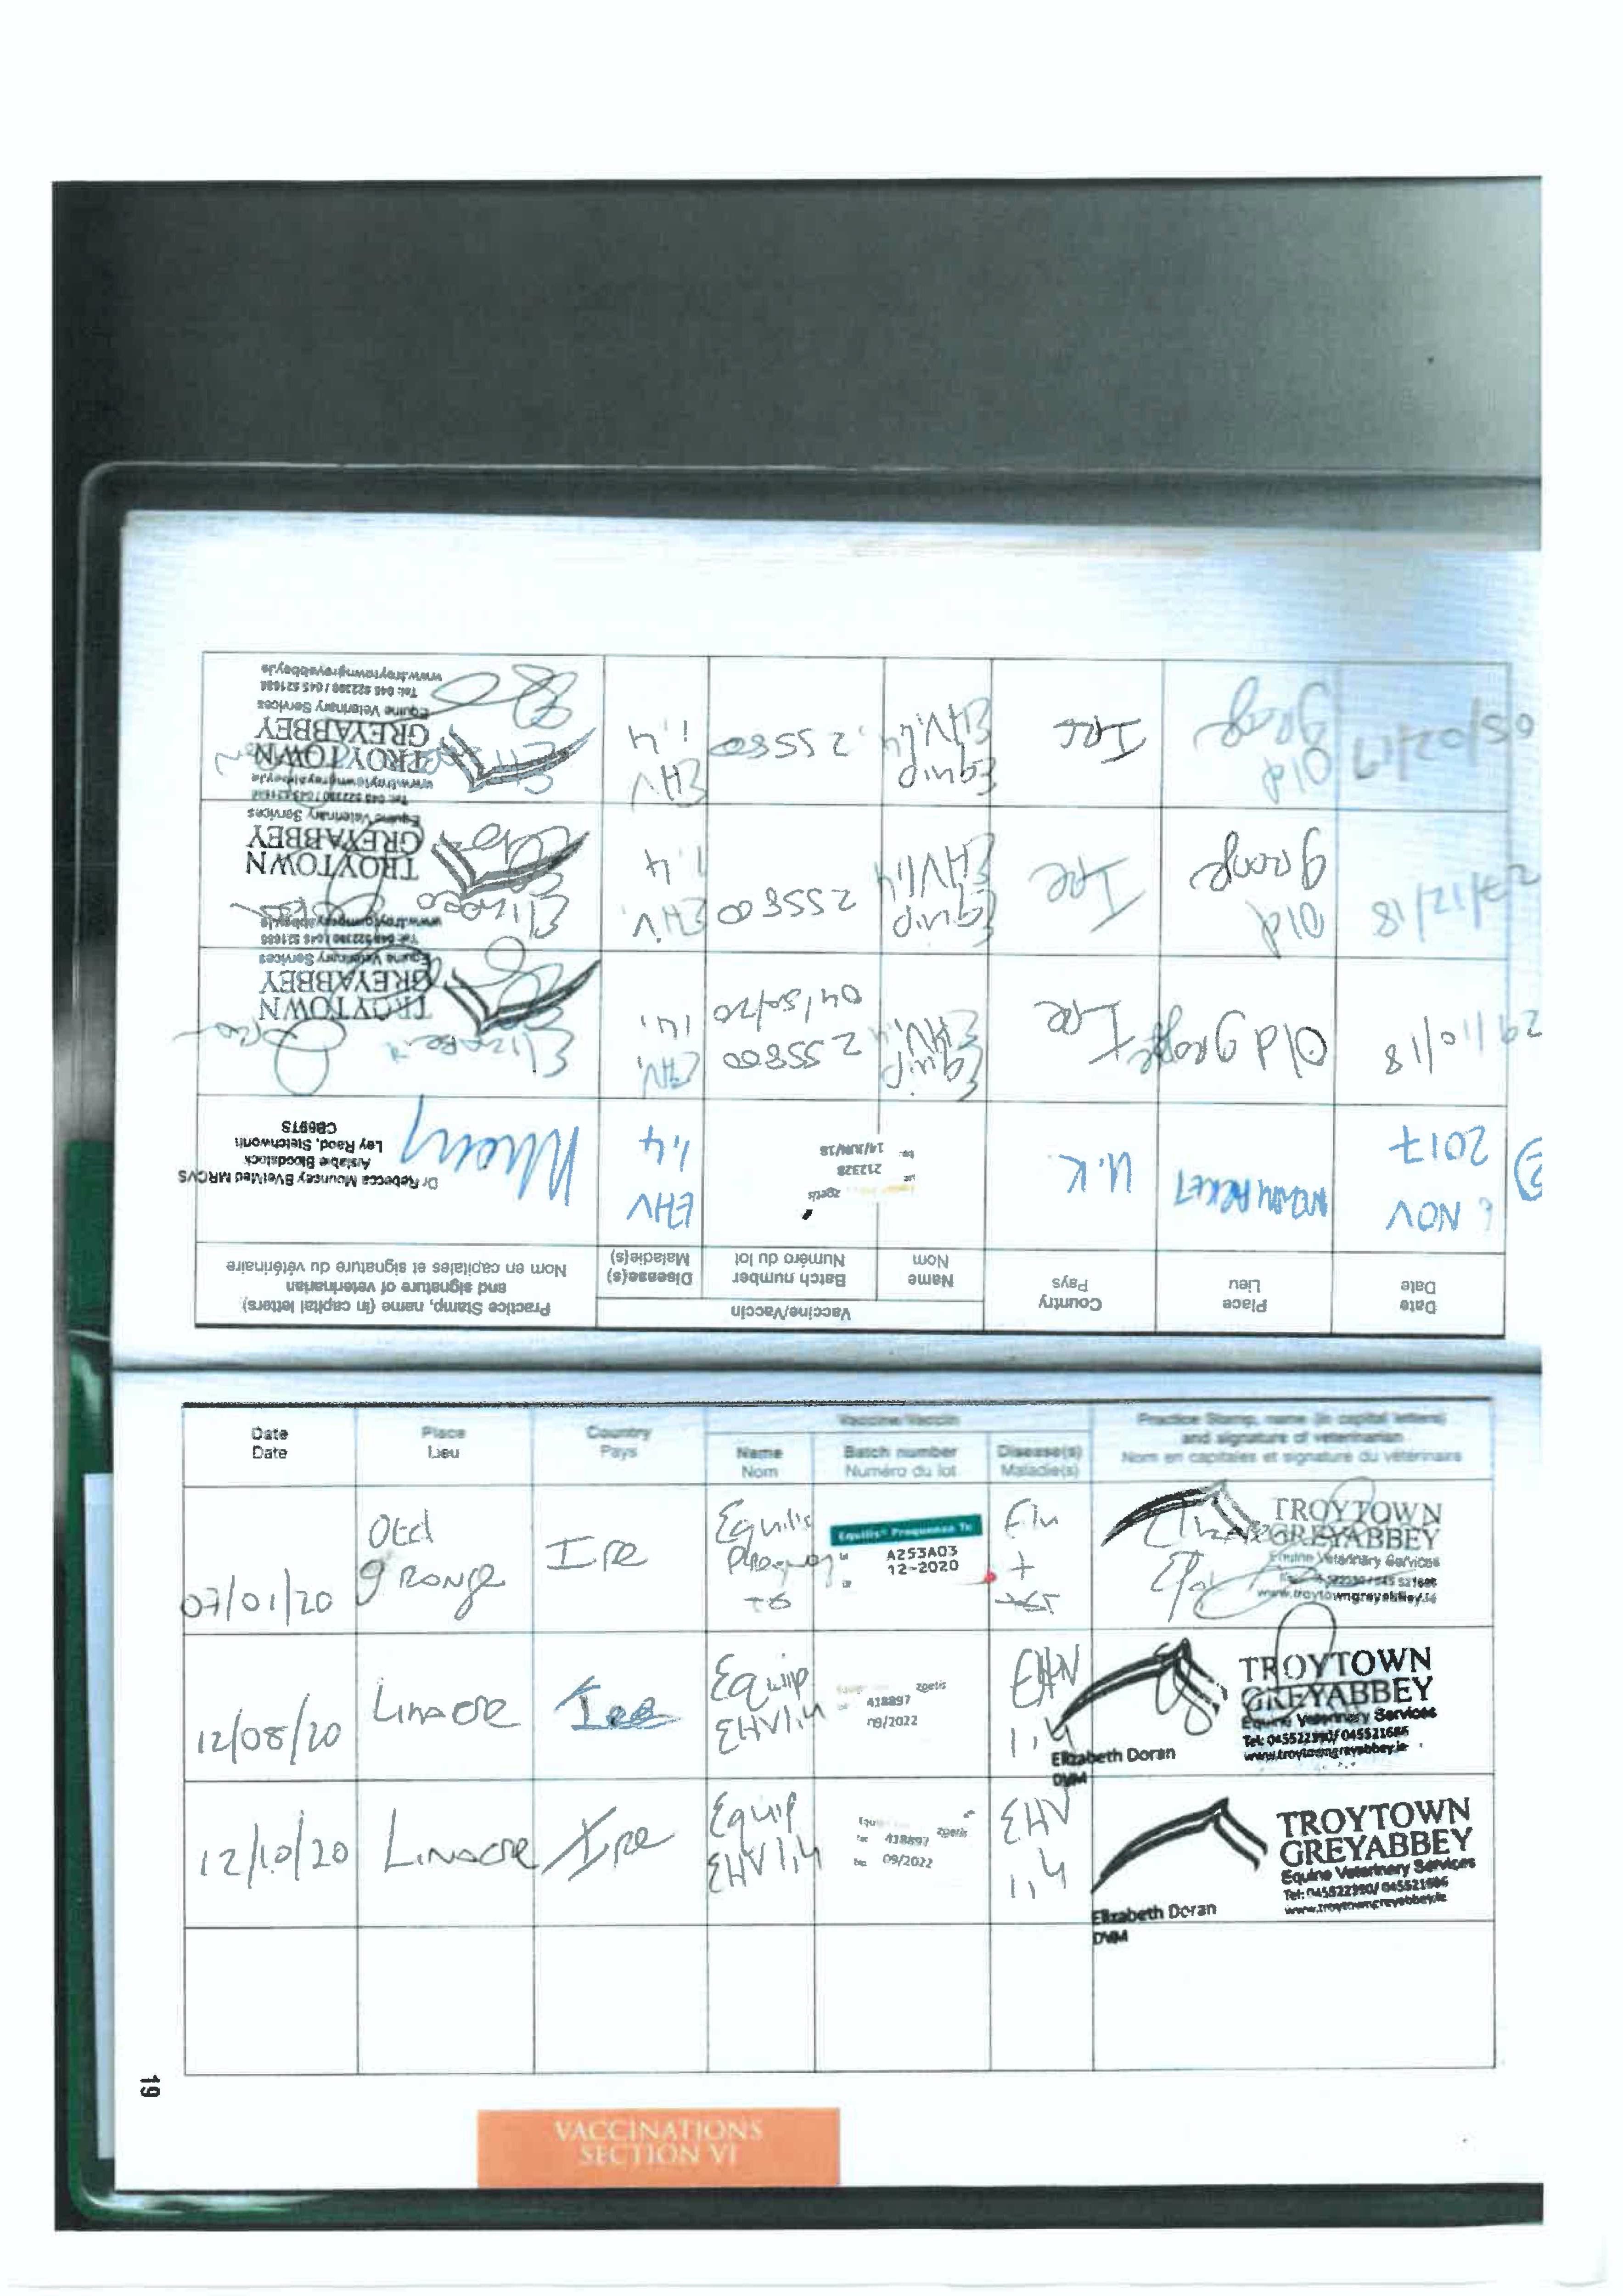 Date Place Country Vaccine/Vaccin Practice Stamp, name (in capital letters)
and signature of veterinarian
Date Lieu Pays Name Batch number Disease(s)
Nom Numéro du lot Maladie(s) Nom en capitales et signature du vétérinaire
6 NOV 2017 NEWMARKET U.K. zoetis 212328 14/JUN/18 EHV 1.4
Dr Rebecca Mouncey BVetMed MRCVS
Aislabie Bloodstock
Ley Road, Stetchworth
CB89TS
29/10/18 Old grange Ire Equip EHV1,4 255800 04/30/20 EHV, 1,4
Elizabeth
TROYTOWN
GREYABBEY
Equine Veterinary Services
Tel: 045 522390 / 045 521686
www.troytowngreyabbey.ie
27/12/18 Old grange Ire Equip EHV1,4 255800 EHV, 1.4
TROYTOWN
GREYABBEY
Equine Veterinary Services
Tel: 045 522390 / 045 521686
www.troytowngreyabbey.ie
Old grange Ire Equip EHV1,4 255800 EHV 1.4
TROYTOWN
GREYABBEY
Equine Veterinary Services
Tel: 045 522390 / 045 521686
www.troytowngreyabbey.ie
Date Place Country Vaccine/Vaccin Practice Stamp, name (in capital letters)
and signature of veterinarian
Date Lieu Pays Name Batch number Disease(s)
Nom Numéro du lot Maladie(s) Nom en capitales et signature du vétérinaire
07/01/20 Old grange Ire Equilis Equilis® Prequenza Te A253A03 12-2020 Flu +
TROYTOWN
GREYABBEY
Equine Veterinary Services
www.troytowngreyabbey.ie
12/08/20 Linacre Ire Equip EHV1,4 zoetis 418897 09/2022 EHV 1,4
Elizabeth Doran
DVM
TROYTOWN
GREYABBEY
Equine Veterinary Services
Tel: 045522390/ 045521686
www.troytowngreyabbey.ie
12/10/20 Linacre Ire Equip EHV1,4 zoetis 418897 09/2022 EHV 1,4
Elizabeth Doran
DVM
TROYTOWN
GREYABBEY
Equine Veterinary Services
Tel: 045522390/ 045521686
www.troytowngreyabbey.ie
19
VACCINATIONS
SECTION VI